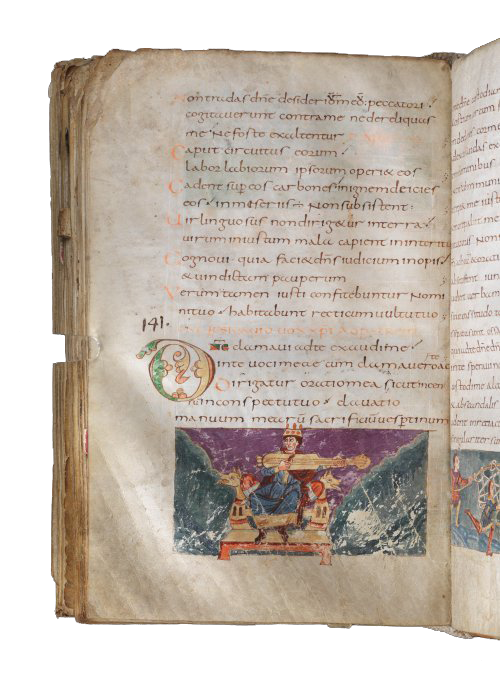 Non tradas dne desiderio meo peccatori
cogitauerunt contra me ne derelinquas
me Ne forte exaltentur
Caput circuitus eorum
labor labiorum ipsorum operi& eos
Cadent sup eos carbones in ignem deicies
eos in miseriis Non subsistent
Uir linguosus non dirig&ur in terra
uirum iniustum mala capient in interitu
Cognoui quia faci& dns iudicium inopis
& uindictam pauperum
Uerum tamen iusti confitebuntur Nomi
ni tuo habitabunt recti cum uultu tuo
141.
Dne clamaui ad te exaudi me
uoci meae cum clamauero ad te
Dirigatur oratio mea sicut incen
sum in conspectu tuo eleuatio
manuum mearū sacrificiū uespertinum